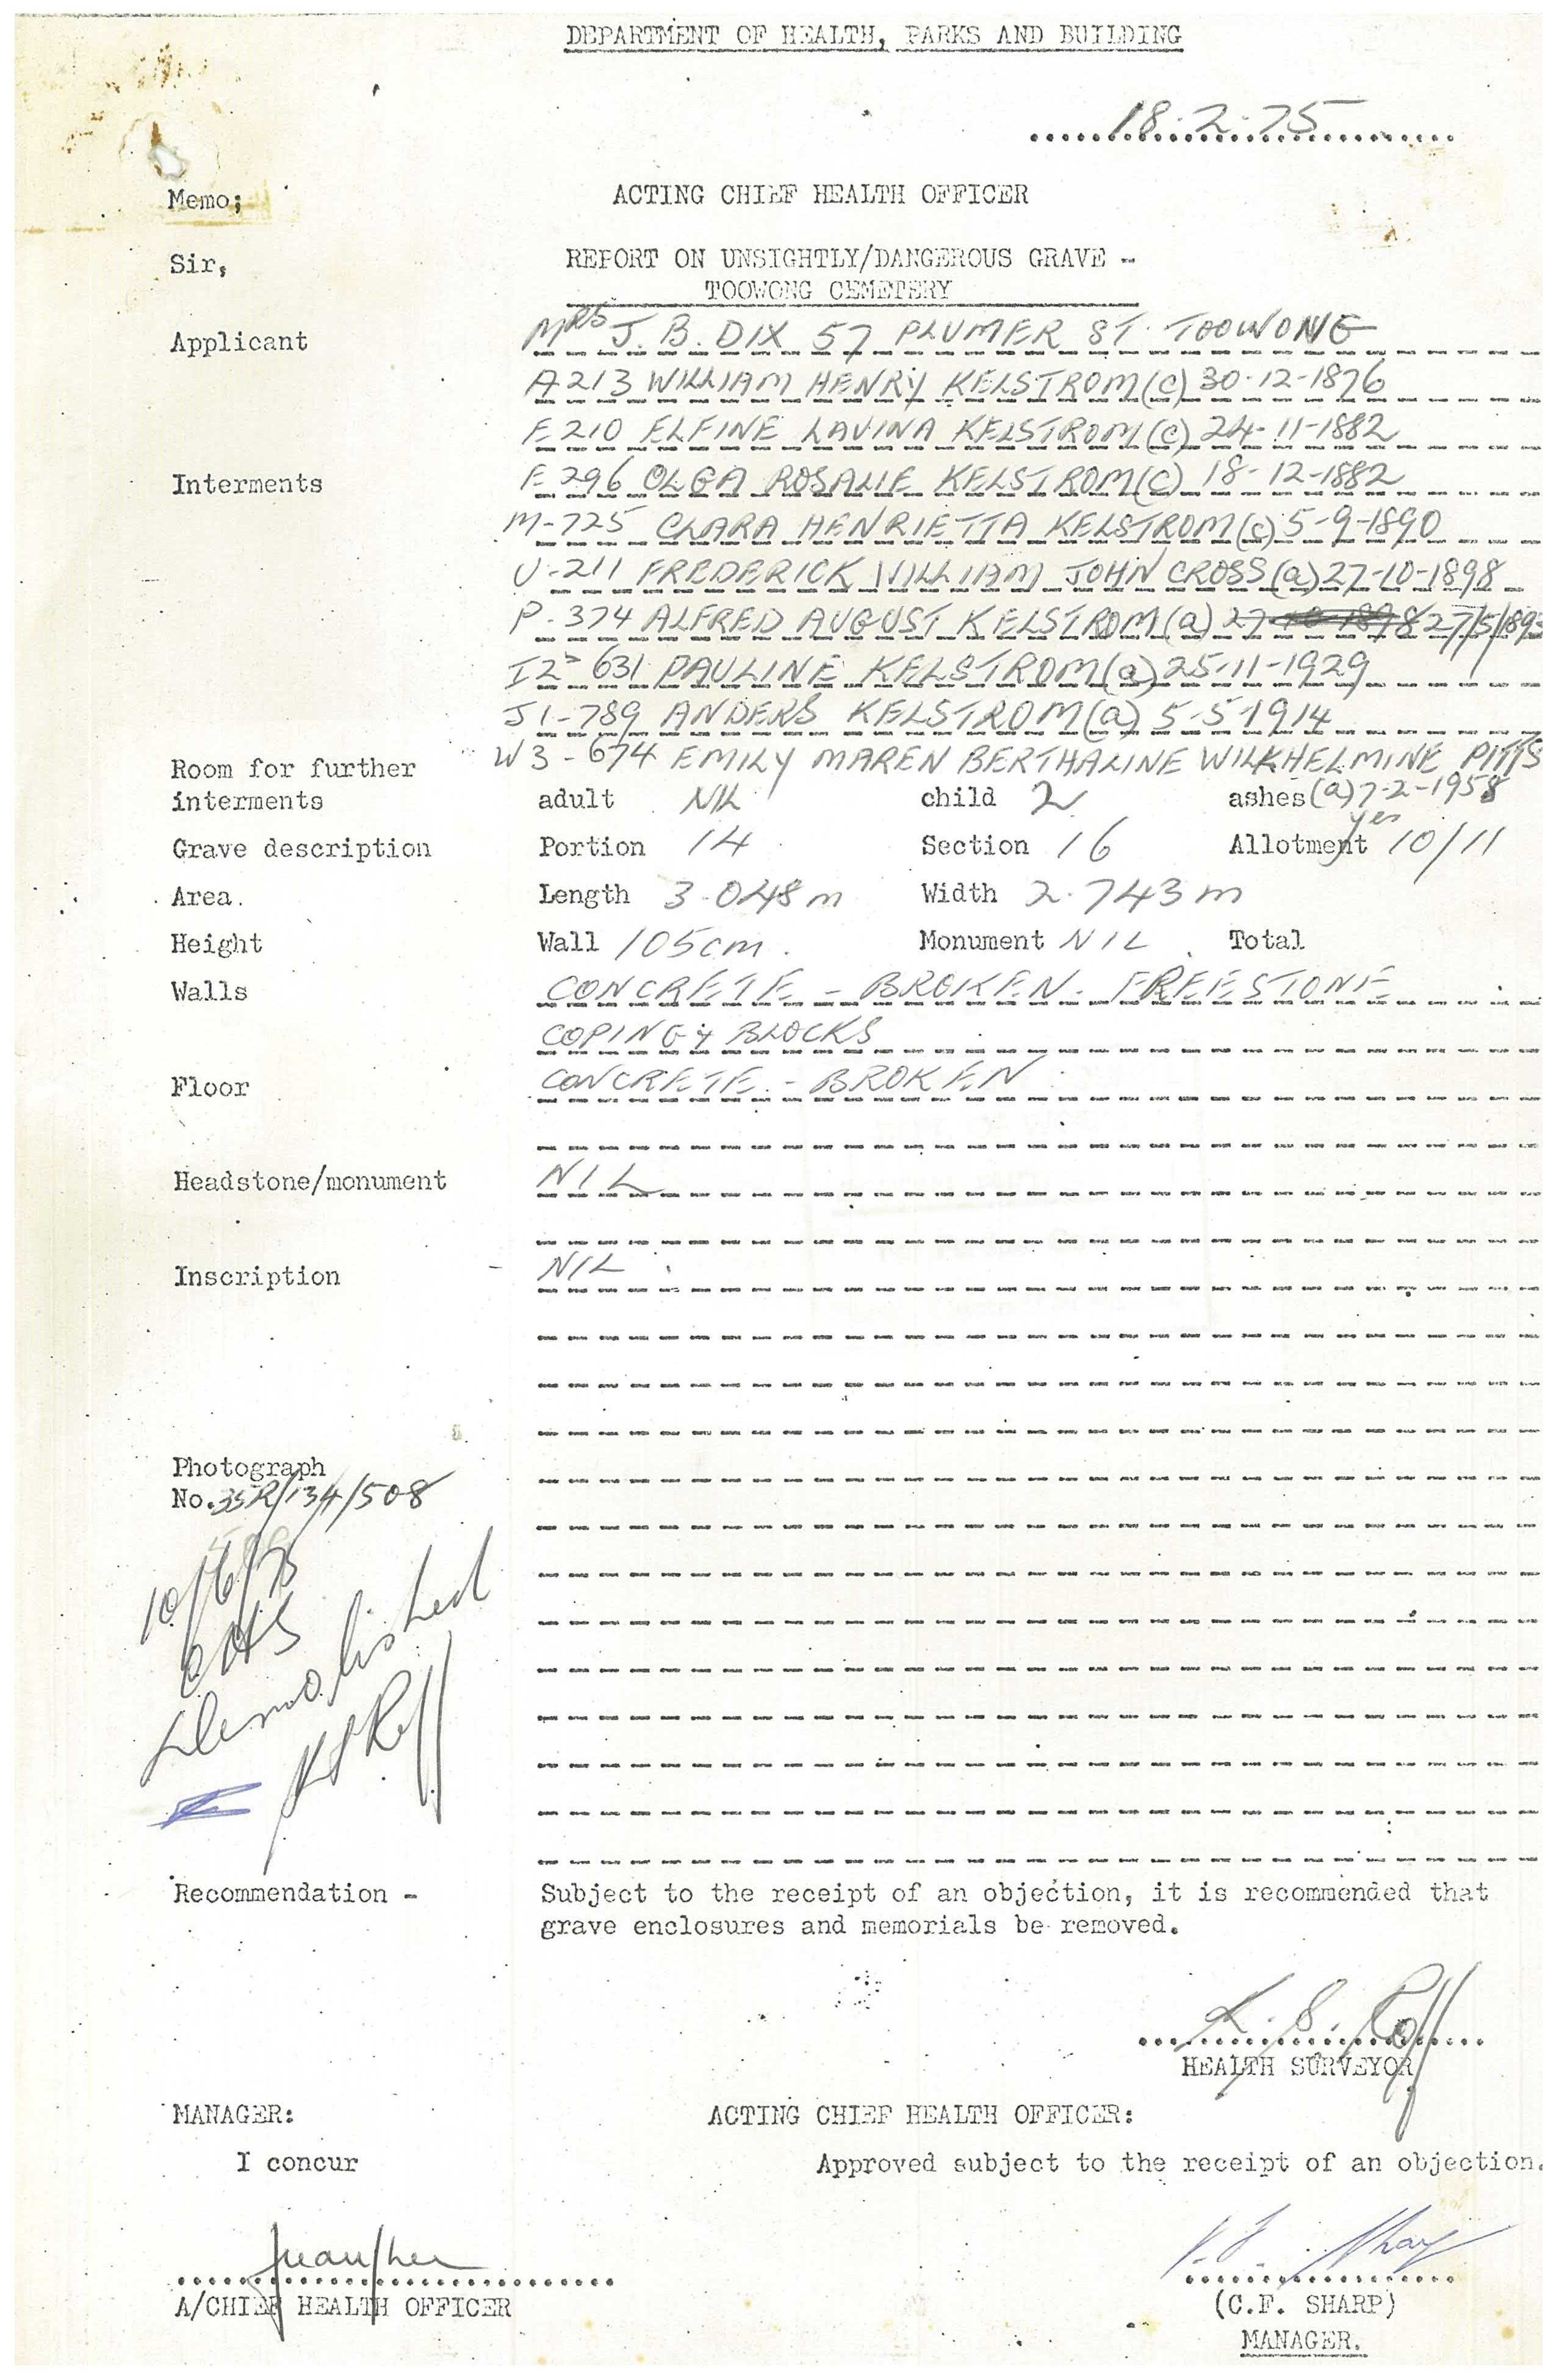 DEPARTMENT OF HEALTH, PARKS AND BUILDING
18.2.75
Memo; ACTING CHIEF HEALTH OFFICER
Sir, REPORT ON UNSIGHTLY/DANGEROUS GRAVE -
TOOWONG CEMETERY
Applicant MRS J. B. DIX 57 PLUMER ST. TOOWONG
A.213 WILLIAM HENRY KELSTROM (C) 30-12-1876
F.210 ELFINE LAVINA KELSTROM (C) 24-11-1882
Interments F.296 OLGA ROSALIE KELSTROM (C) 18-12-1882
M-725 CLARA HENRIETTA KELSTROM (C) 5-9-1890
U-211 FREDERICK WILLIAM JOHN CROSS (a) 27-10-1898
P-374 ALFRED AUGUST KELSTROM (a) 27-10-1898 27/5/1893
I2-631 PAULINE KELSTROM (a) 25-11-1929
J1-789 ANDERS KELSTROM (a) 5-5-1914
W3-674 EMILY MAREN BERTHALINE WILKHELMINE PITTS
Room for further
interments adult NIL child 2 ashes (a) 7-2-1958
yes
Grave description Portion 14 Section 16 Allotment 10/11
Area. Length 3.048 m Width 2.743 m
Height Wall 105cm. Monument NIL Total
Walls CONCRETE - BROKEN. FREESTONE
COPING & BLOCKS
Floor CONCRETE - BROKEN
Headstone/monument NIL
Inscription NIL
Photograph
No. 35R/134/508
10/6/75
demolished
Recommendation - Subject to the receipt of an objection, it is recommended that
grave enclosures and memorials be removed.
HEALTH SURVEYOR
MANAGER: ACTING CHIEF HEALTH OFFICER:
I concur Approved subject to the receipt of an objection.
A/CHIEF HEALTH OFFICER (C.F. SHARP)
MANAGER.